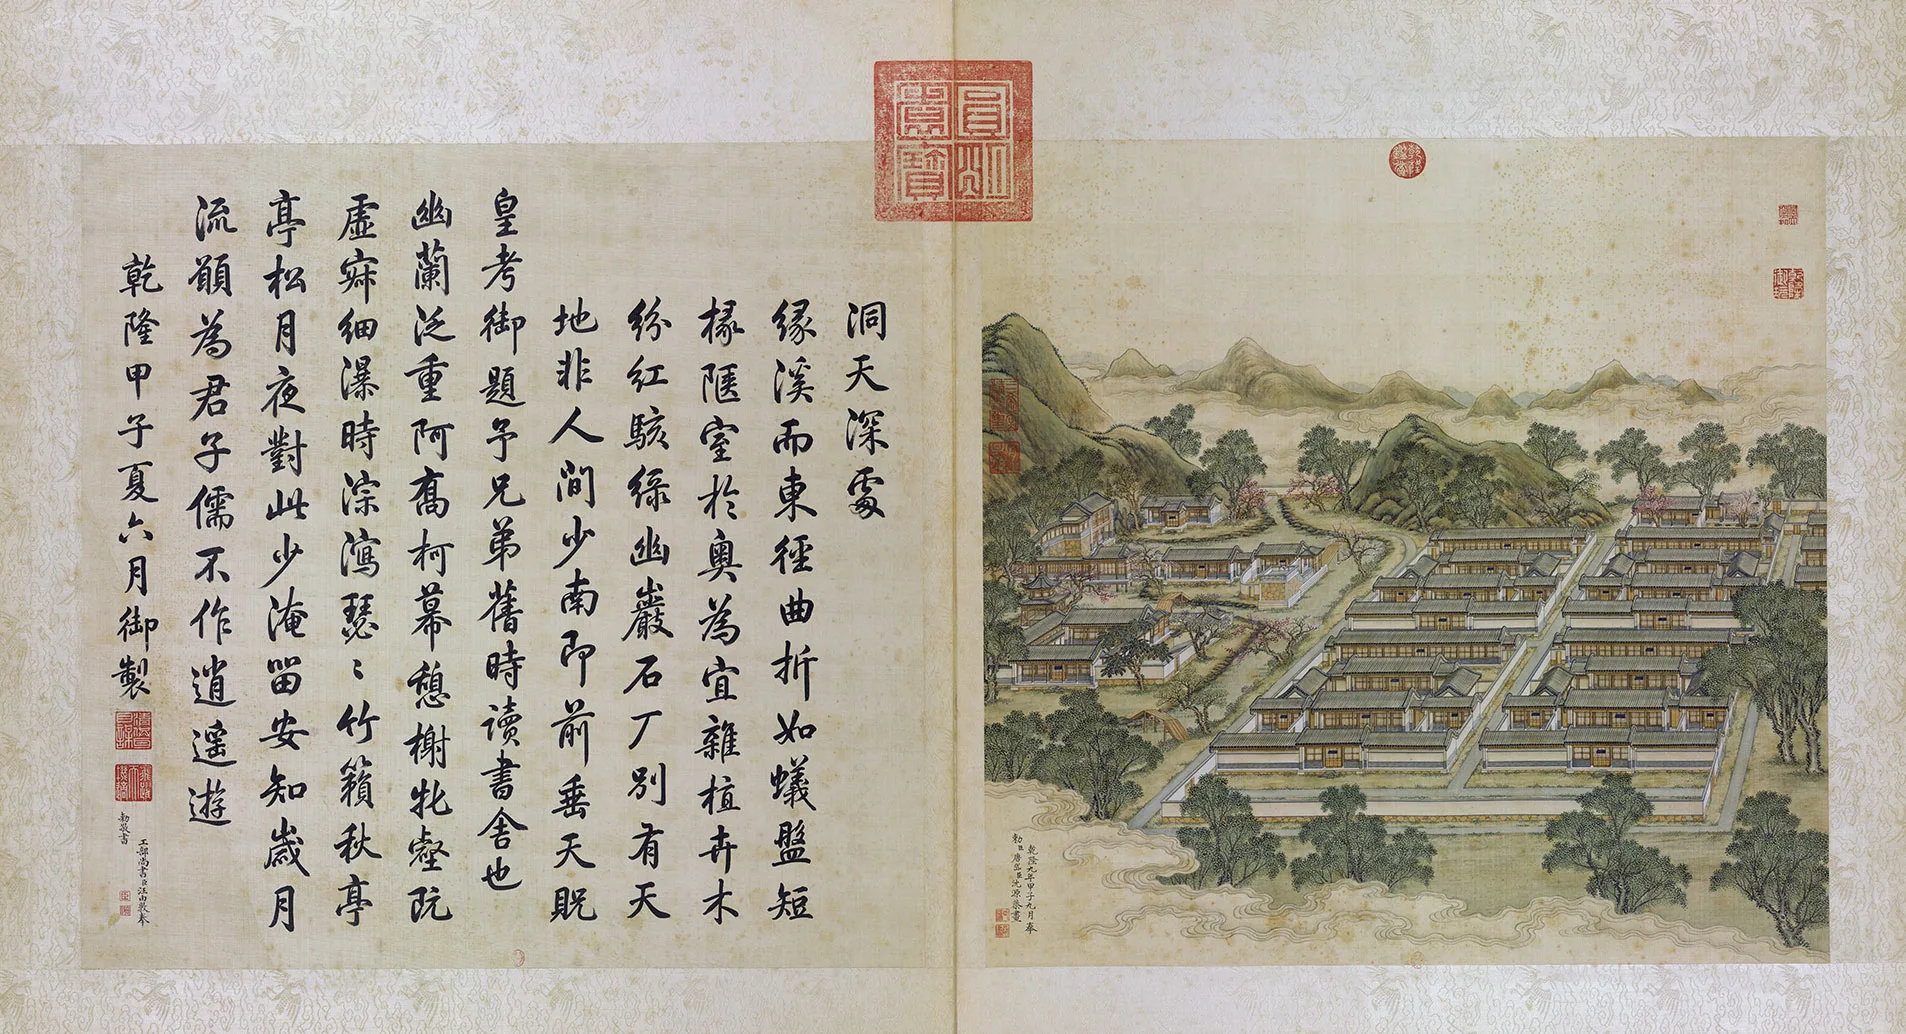 乾隆九年甲子九月奉
勅臣唐岱臣沈源恭畫
洞天深處
縁溪而東徑曲折如蟻盤短
椽陿室於奧為宜雜植卉木
紛紅駭綠幽巖石厂別有天
地非人間少南即前垂天貺
皇考御題予兄弟舊時讀書舍也
幽蘭泛重阿喬柯幕憩榭牝壑既
虛寂細瀑時淙瀉瑟〻竹籟秋亭
亭松月夜對此少淹留安知歲月
流願為君子儒不作逍遙遊
乾隆甲子夏六月御製
工部尚書臣汪由敦奉
勅敬書